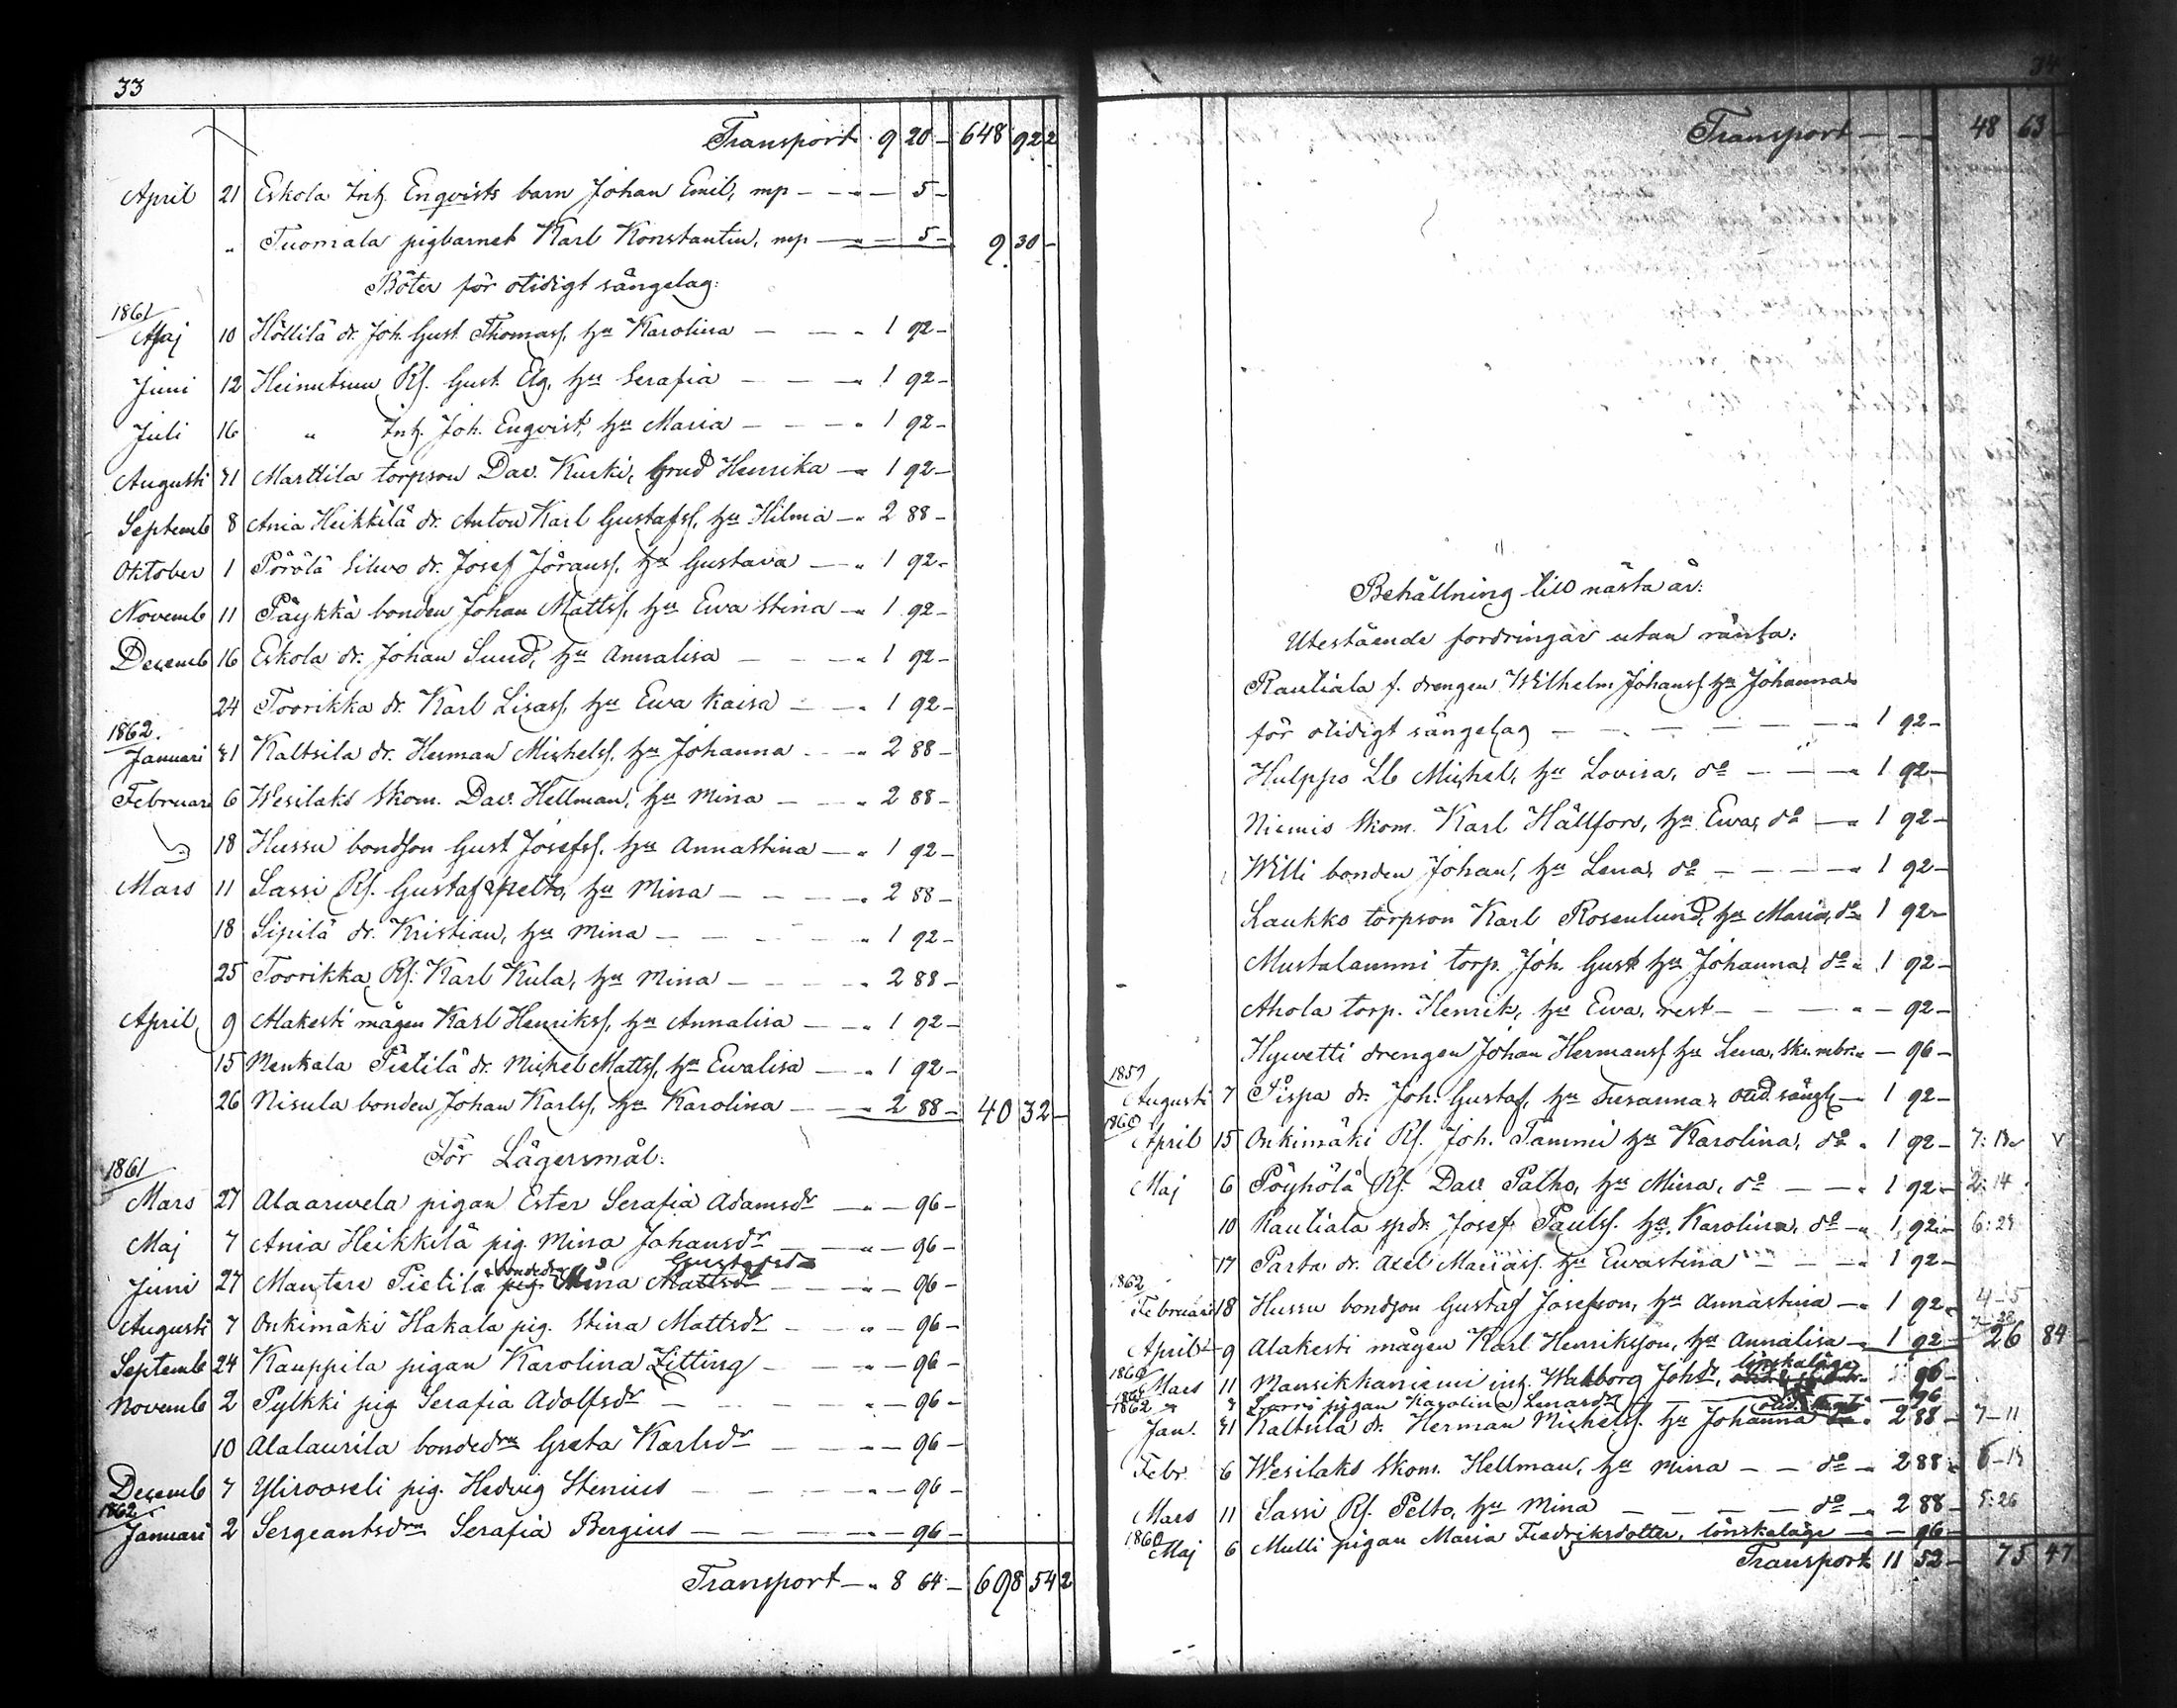 33
Transport 9 20 - 648 92 2
April 21 Eskola Inh. Enqvists barn Johan Emil, mp - - " - 5 -
" Tuomala pigbarnet Karl Konstantin, mp - " - 5 - 9 30 -
Böter för otidigt sängelag:
1861
Maj 10 Höllilä dr. Joh. Gust. Thomass. hu Karolina - - " 1 92 -
Juni 12 Heinutsuu Rf. Gust. Elg, hu Serafia - - " 1 92 -
Juli 16 " Inh. Joh. Enqvist, hu Maria - - " 1 92 -
Augusti 31 Marttila torpson Dav. Kurki, brud Henrika - " 1 92 -
Septemb 8 Ania Heikkilä dr. Anton Karl Gustafss. hu Hilma - " 2 88 -
Oktober 1 Pörölä Silvo dr. Josef Jöranss. hu Gustava - " 1 92 -
Novemb 11 Päykkä bonden Johan Mattss. hu Ewa Stina - " 1 92 -
Decemb 16 Eskola dr. Johan Sund, hu Annalisa - - " 1 92 -
24 Toorikka dr. Karl Lisass. hu Ewa Kaisa - " 1 92 -
1862.
Januari 31 Kaltsila dr. Herman Michelss. hu Johanna - " 2 88 -
Februari 6 Wesilaks Skom. Dav. Hellman, hu Mina - - " 2 88 -
18 Hussu bondson Gust Josefss. hu Annastina - " 1 92 -
Mars 11 Sassi Rf. Gustaf Pelto, hu Mina - - " 2 88 -
18 Sipilä dr. Kristian, hu Mina - - " 1 92 -
25 Toorikka Rf. Karl Kula, hu Mina - - " 2 88 -
April 9 Alakesti mågen Karl Henrikss. hu Annalisa - " 1 92 -
15 Menkala Pietilä dr. Michel Mattss. hu Ewalisa - " 1 92 -
26 Nisula bonden Johan Karlss. hu Karolina - " 2 88 - 40 32 -
För Lägersmål:
1861
Mars 27 Alaarwela pigan Ester Serafia Adamsdr - " - 96 -
Maj 7 Ania Heikkilä pig. Mina Johansdr - " - 96 -
Gustafsdr
Juni 27 Mantere Pietilä bondedr pig. Mina Mattsdr - " - 96 -
Augusti 7 Onkimäki Hakala pig. Stina Mattsdr - - " - 96 -
Septemb 24 Kauppila pigan Karolina Litting - - " - 96 -
Novemb 2 Pylkki pig Serafia Adolfsdr - - " - 96 -
10 Alalaurila bondedrn Greta Karlsdr - - " - 96 -
Decemb 7 Ylirooseli pig. Hedvig Stenius - - " - 96 -
1862
Januari 2 Sergeantsdrn Serafia Bergius - - " - 96 -
Transport - " 8 64 - 698 54 2
34
Transport - - 48 63 -
Behållning till nästa år:
Utestående fordringar utan ränta:
Rautiala f. drengen Wilhelm Johanss. hu Johanna
för otidigt sängelag - - - " 1 92 -
Hulppo Lb Michel, hu Lovisa, do - - " 1 92 -
Niemis Skom. Karl Hällfors, hu Ewa, do - " 1 92 -
Willi bonden Johan, hu Lena, do - - " 1 92 -
Laukko torpson Karl Rosenlund, hu Maria, do " 1 92 -
Mustalammi torp. Joh. Gust hu Johanna, do " 1 92 -
Ahola torp. Henrik, hu Ewa, rest - - " - 92 -
Hywetti drengen Johan Hermanss. hu Lena, - 96 -
1857
Augusti 7 Pispa dr. Joh. Gustaf, hu Susanna, otid. sängl. - 1 92 -
1860
April 15 Onkimäki Rf. Joh. Tammi hu Karolina, do " 1 92 -
Maj 6 Pöyhölä Rf. Dav Palho, hu Mina, do - " 1 92 - 2: 14
10 Rautiala sp.dr. Josef Paulss. hu Karolina, do - " 1 92 -
17 Parta dr. Axel hu Ewastina " - " 1 92 -
1862
Februari 18 Hussu bondson Gustaf Josefsson, hu Annastina - " 1 92 -
April 9 Alakesti mågen Karl Henriksson, hu Annalisa - 1 92 - 26 84 -
1860
Mars 11 Mansikkaniemi inh. Walborg Johdr, lönskaläge - 96 -
pigan Karolina Lenasdr - 96
1862
Jan. 31 Kaltsila dr. Herman Michelss. hu Johanna 2 88 - 7-11
Febr. 6 Wesilaks Skom. Hellman, hu Mina - - do - 2 88 -
Mars 11 Sassi Rf. Pelto, hu Mina - - do - " 2 88 - 5: 26
1860
Maj 6 Mulli pigan Maria Fredriksdotter, lönskaläge - " - 96 -
Transport 11 52 - 75 47